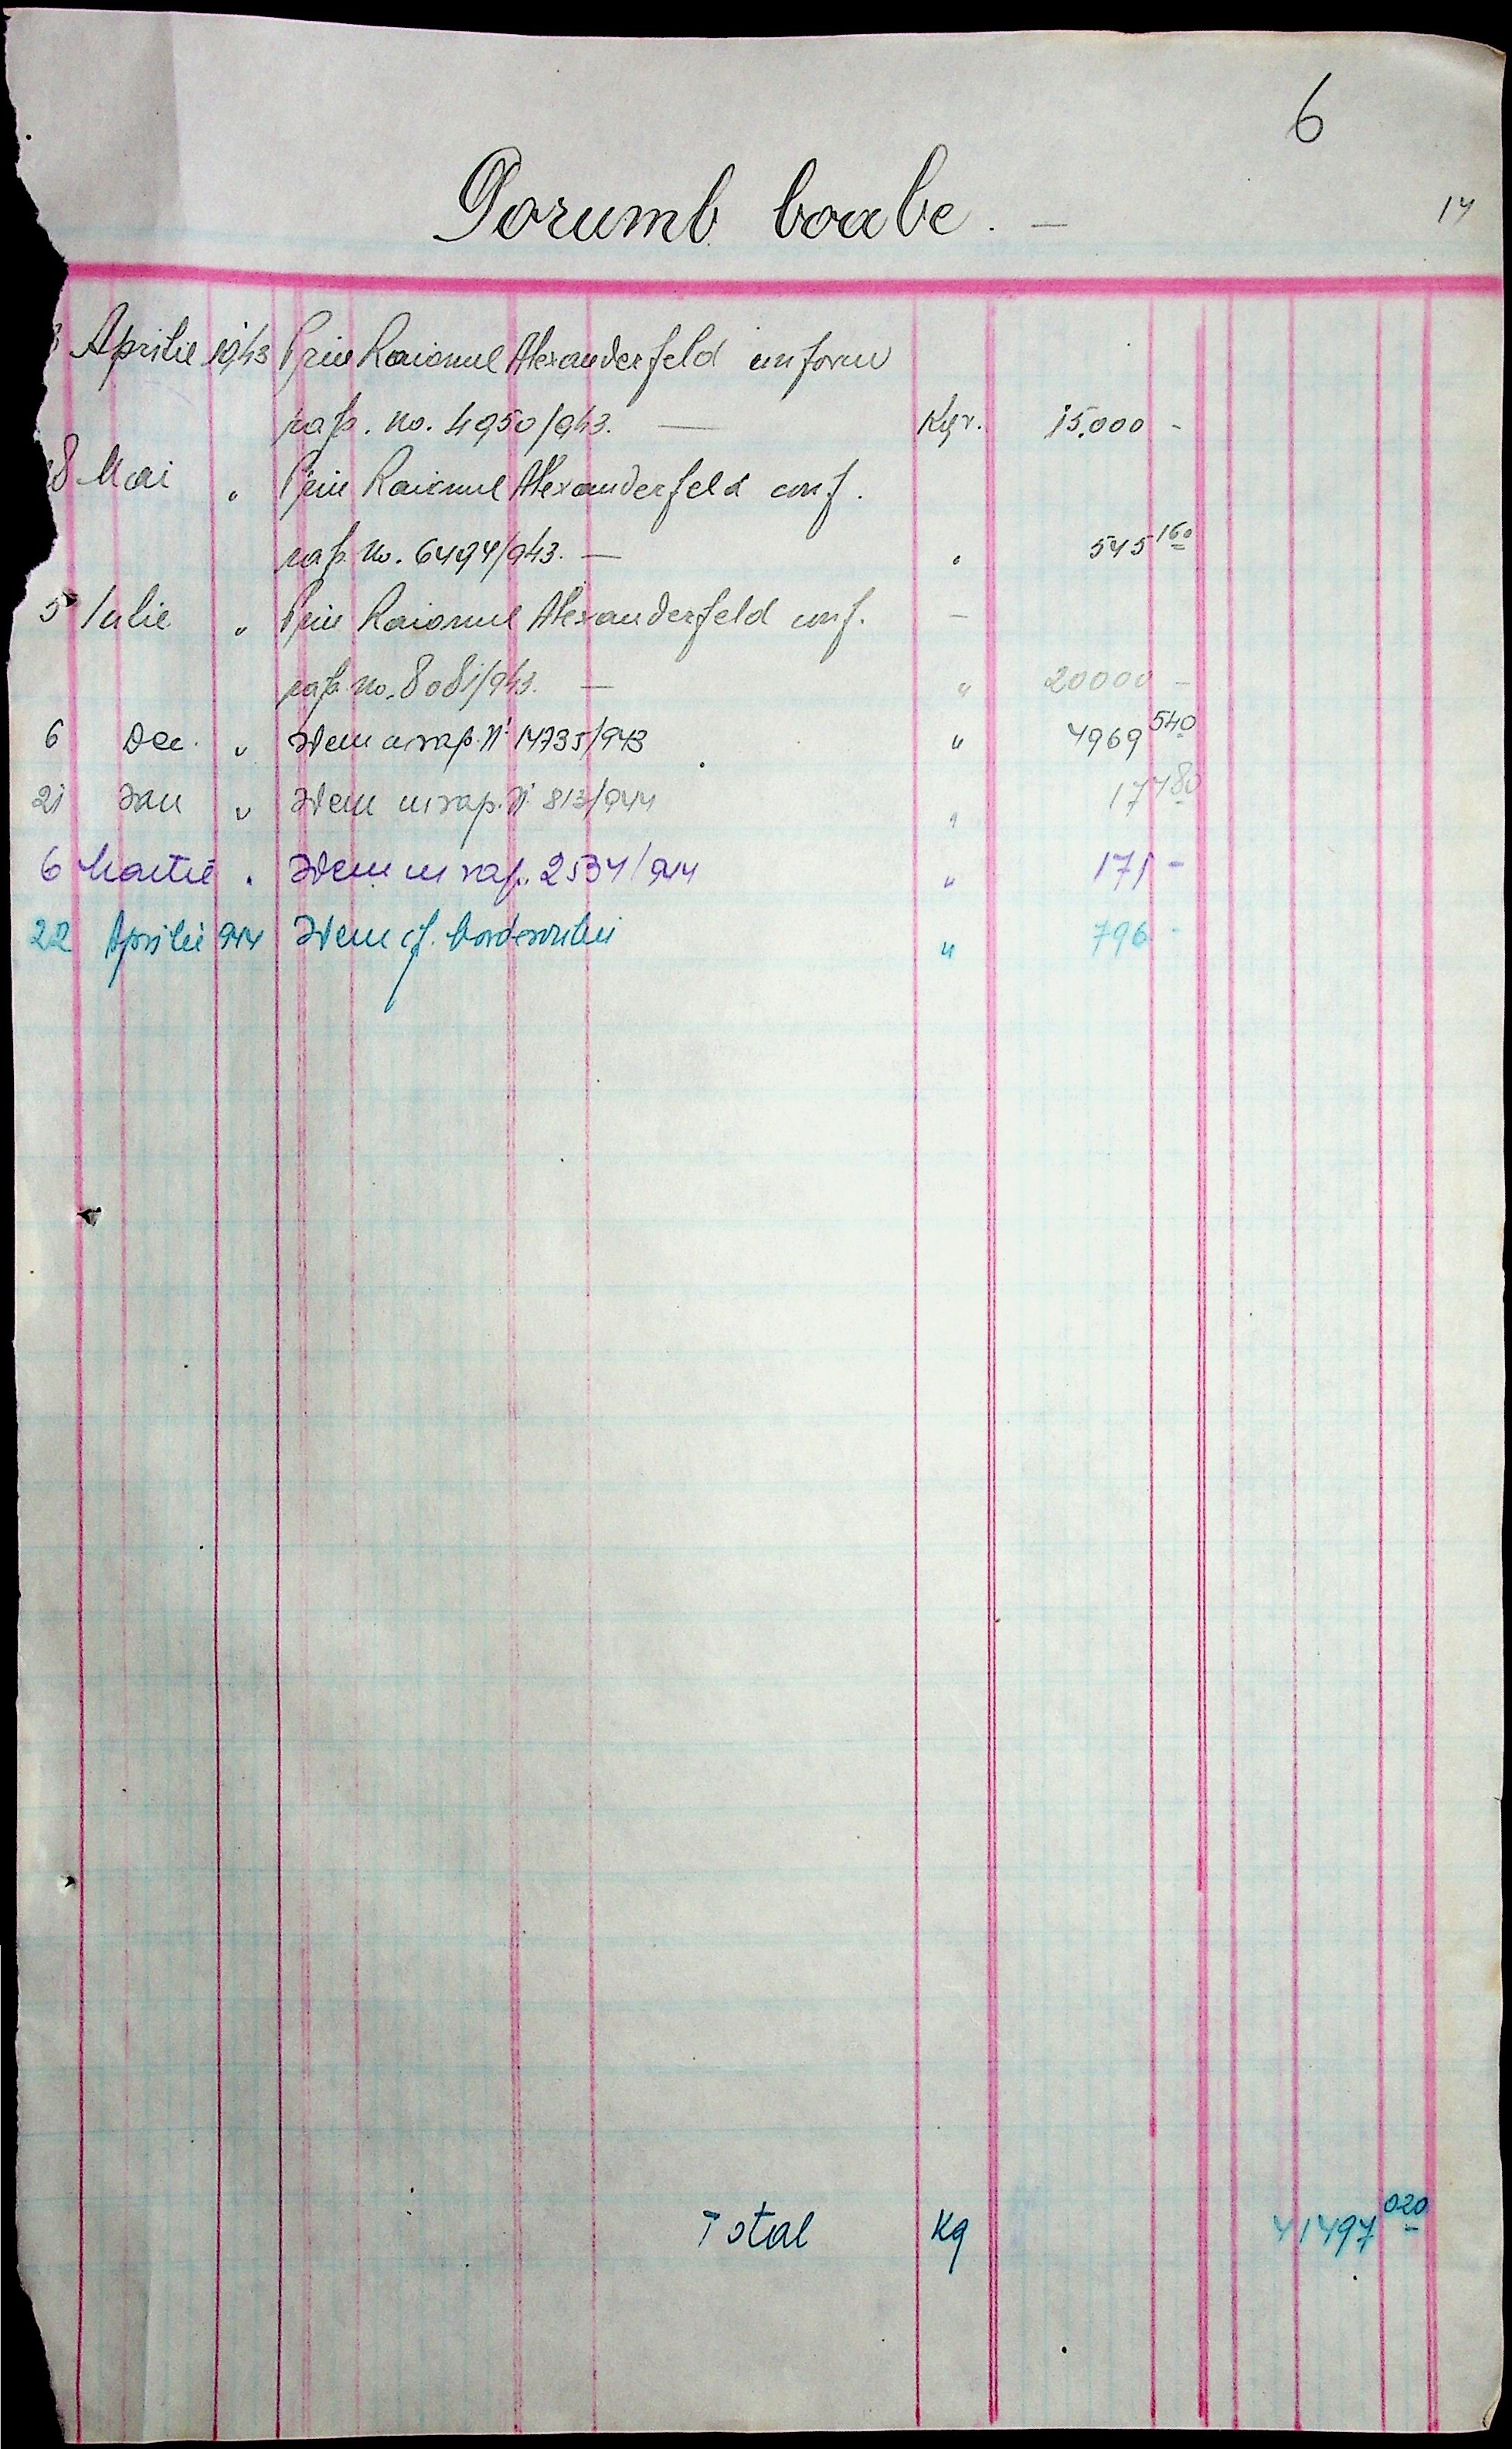 6
Porumb boabe. —
14
Aprilie 1943 Prin Raionul Alexanderfeld conform
rap. No. 4950/943. — Kgr. 15.000 -
8 Mai " Prin Raionul Alexanderfeld conf.
rap. No. 6494/943. — " 545 160
5 Iulie " Prin Raionul Alexanderfeld conf. —
rap. No. 8081/943. — " 20000 -
6 Dec. " Idem cu rap. N 14735/943 " 4969 540
21 Ian " Idem cu rap. N 813/944 " 17 480
6 Martie " Idem cu rap. 2534/944 " 171 -
22 Aprilie 944 Idem cf. borderoului " 796 -
Total Kg 41497 020